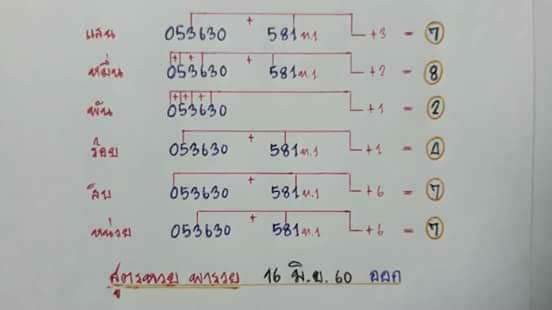 แสน 053630 + 581 ท.1 +3 = 7
หมื่น 053630 + + + 581 ท.1 +2 = 8
พัน 053630 + + + +1 = 2
ร้อย 053630 + 581 ท.1 +1 = 4
สิบ 053630 + 581 ท.1 +6 = 7
หน่วย 053630 + 581 ท.1 +6 = 7
สูตรหวย พารวย 16 มิ.ย. 60 ออก